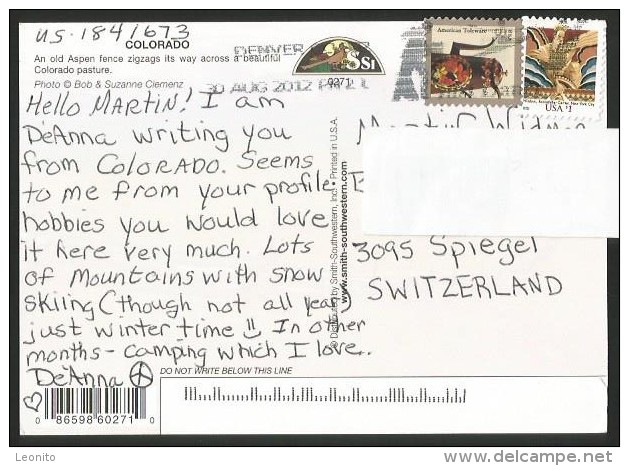 US-1841673
COLORADO
An old Aspen fence zigzags its way across a beautiful
Colorado pasture.
Photo © Bob & Suzanne Clemenz
Hello MARTIN! I am
DeAnna writing you
from COLORADO. Seems
to me from your profile
hobbies you would love
it here very much. Lots
of Mountains with snow
skiing (though not all year)
just winter time In other
months - camping which I love..
De'Anna
DENVER
30 AUG 2012 PM
SSI
0271
American Toleware
USA $1
© Distributed by Smith-Southwestern, Inc. • Printed in U.S.A.
www.smith-southwestern.com
Martin Widmer
3095 Spiegel
SWITZERLAND
DO NOT WRITE BELOW THIS LINE
0 86598 60271 0
Leonito
www.delcampe.net